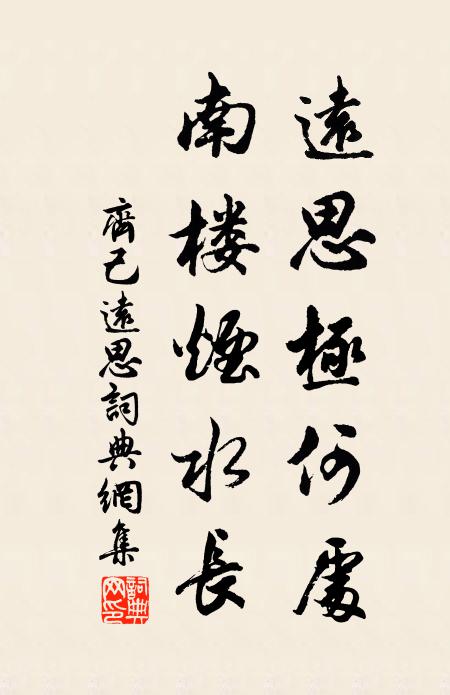 遠思極何處
南楼煙水長
齊己遠思詞典網集
詞典网印